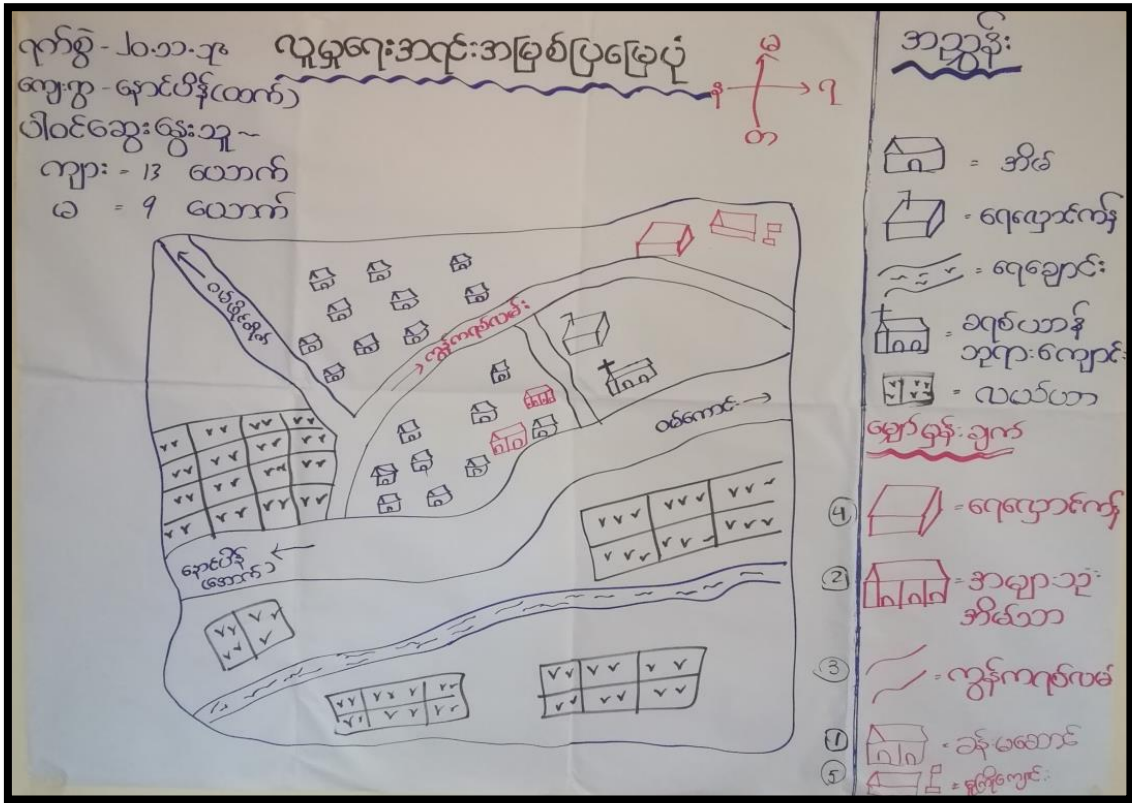 ရက်စွဲ - ၂၀.၁၁.၂၃
လူမှုရေးအရင်းအမြစ်ပြမြေပုံ
ကျေးရွာ - နောင်ပိန်(ထက်)
ပါဝင်ဆွေးနွေးသူ ~
ကျား = 13 ယောက်
မ = 9 ယောက်
မ
န
ရ
တ
ကွန်ကရစ်လမ်း
ဝမ်ကောင်း →
နောင်ပိန်
(အောက်)
အညွှန်း
= အိမ်
= ရေလှောင်ကန်
= ရေချောင်း
= ခရစ်ယာန်
ဘုရားကျောင်း
= လယ်ယာ
မျှော်မှန်းချက်
④ = ရေလှောင်ကန်
② = အများသုံး
အိမ်သာ
③ = ကွန်ကရစ်လမ်း
① = ခန်းမဆောင်
⑤ = မူကြိုကျောင်း